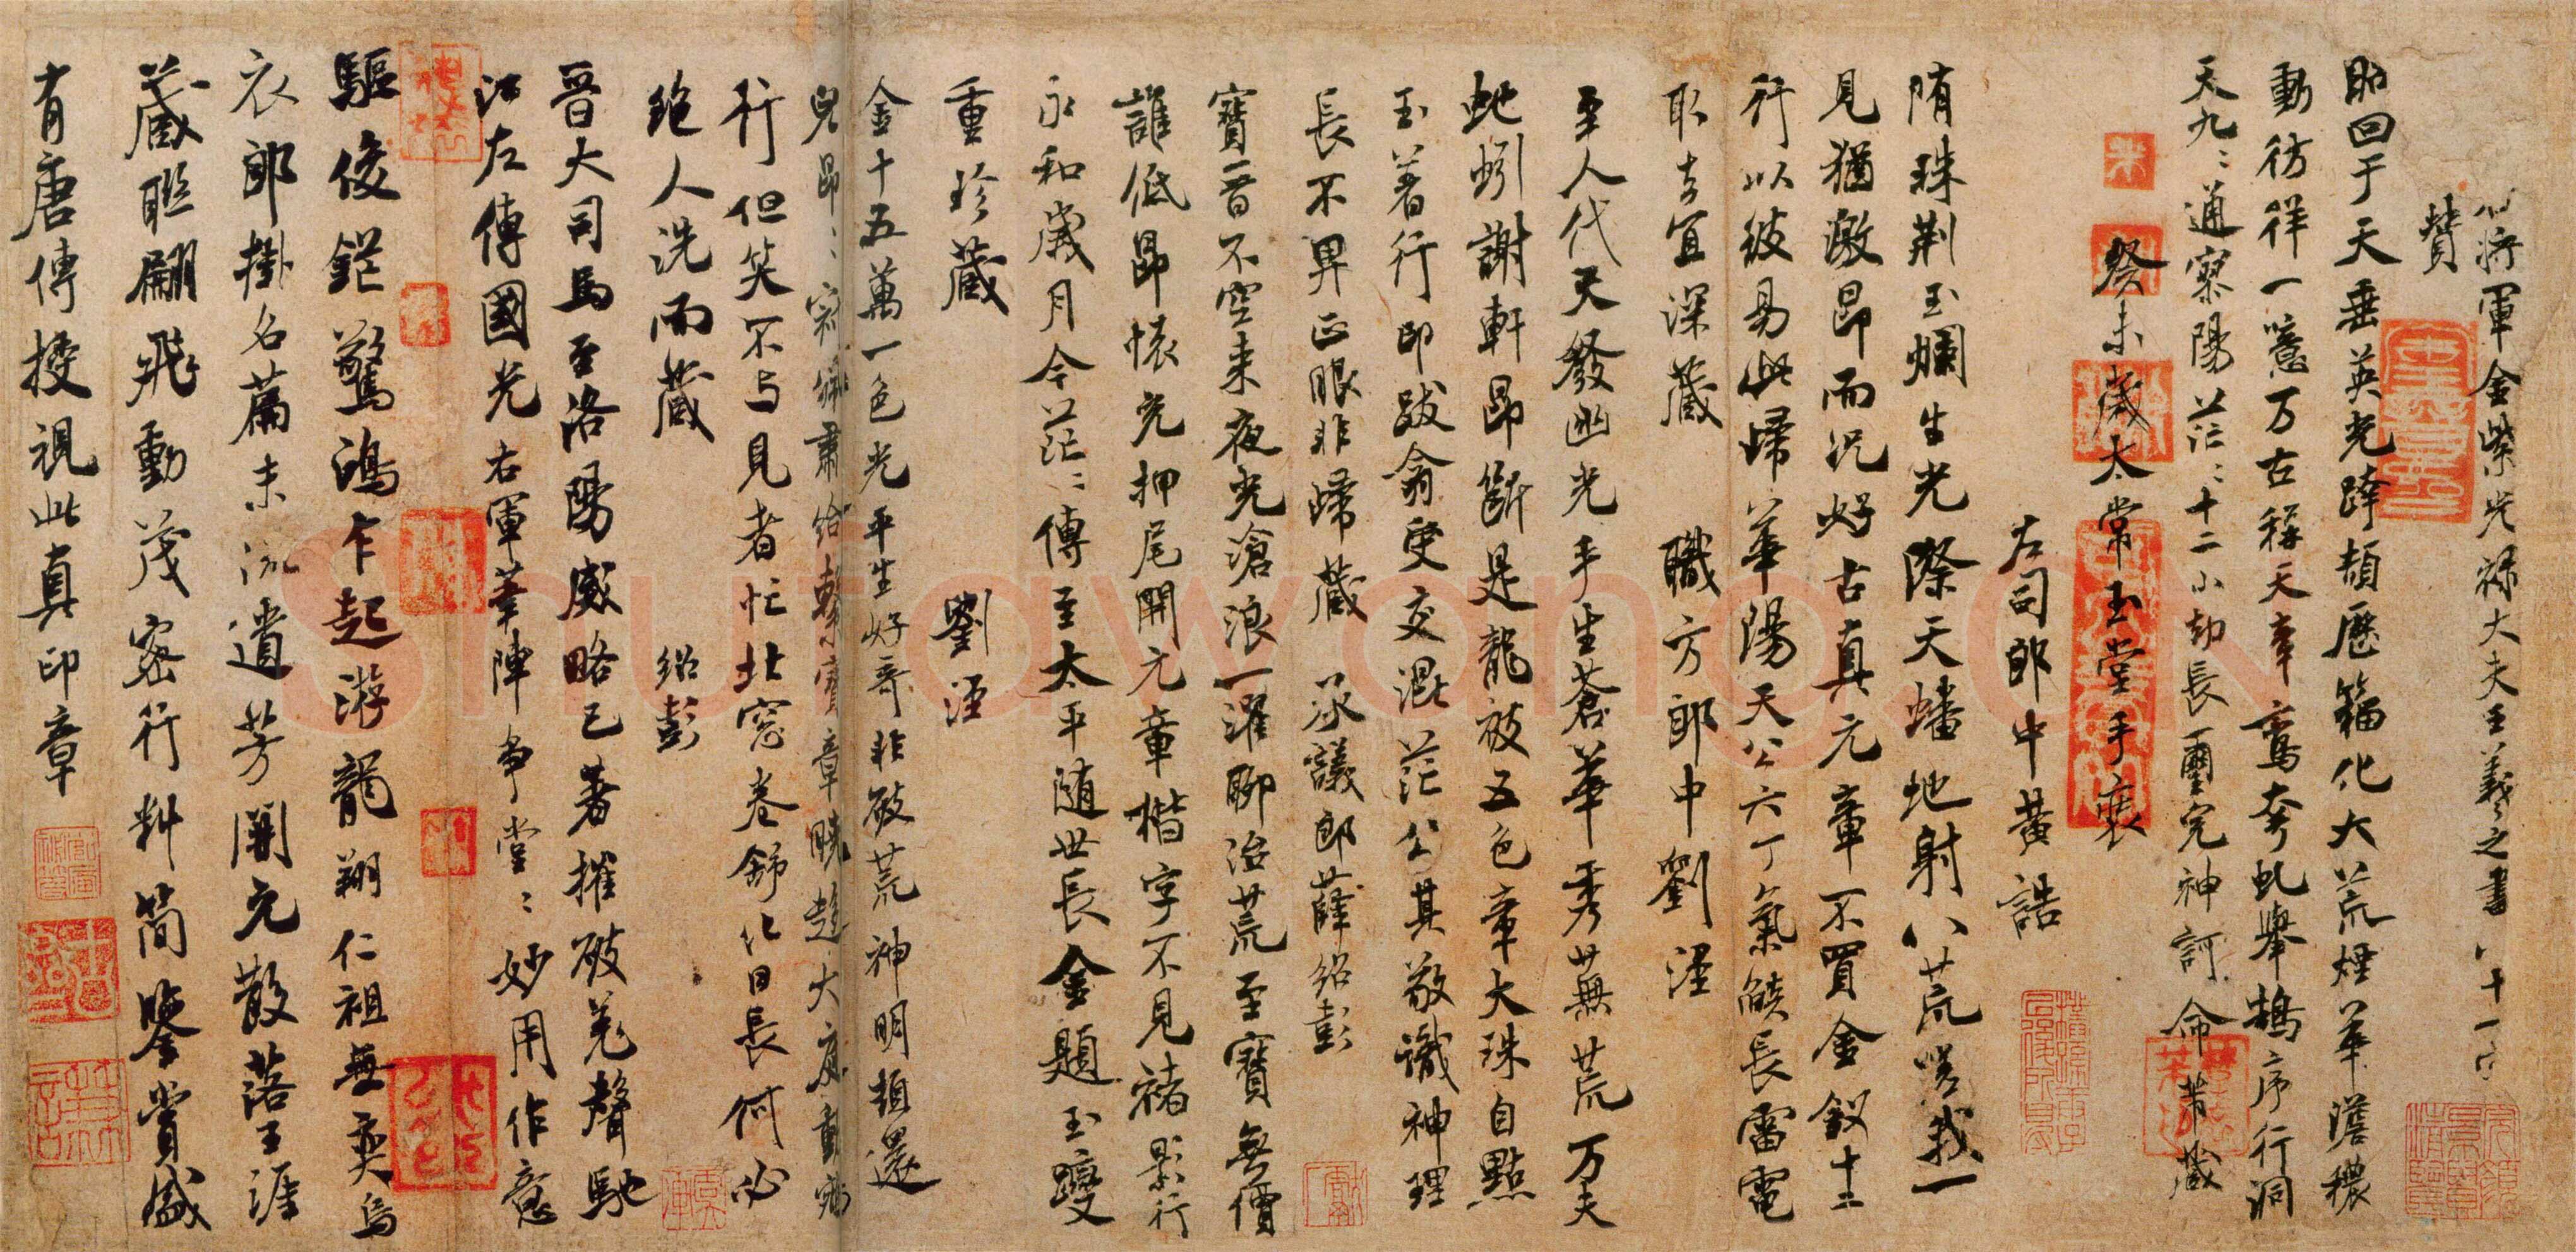 將軍金紫光祿大夫王羲之書八十一字
贊
昭回于天垂英光跨頡歷籀化大荒煙華澹穠
動彷徉一噫万古稱天章鸞夸虬舉鵠序行洞
天九〻通寥陽茫〻十二小劫長璽完神訶命芾藏
癸未歲太常玉堂手裝
左司郎中黃誥
隋珠荊玉爛生光際天蟠地射八荒嗟我一
見猶激昂而況好古真元章不買金釵十二
行以彼易此歸華陽天公六丁氣燄長雷電
取去宜深藏 職方郎中劉涇
至人代天發幽光手生蒼華秀蕪荒万夫
虵蚓謝軒昂斷是龍被五色章大珠自點
玉著行印跋翕叟交混茫公其敬識神理
長不畀正眼非歸藏 承議郎薛紹彭
寶晉不空来夜光滄浪一濯聊治荒至寶無價
誰低昂懷充押尾開元章楷字不見褚影行
永和歲月今茫〻傳至太平隨世長金題玉躞
重珍藏 劉涇
金十五萬一色光平生好奇非破荒神明頓還
兒昂〻 肅給 寶章曉趨大慶
行但笑不与見者忙北窓卷舒化日長何必
絶人洗而藏 紹彭
晉大司馬至洛陽威略已著摧破羌聲馳
江左傳國光右軍筆陣爭堂〻妙用作意
驅俊鋩驚鴻乍起游龍翔仁祖無奕烏
衣郎掛名篇末流遺芳開元散落王涯
藏聯翩飛動茂密行料簡鑒賞盛
有唐傳授視此真印章